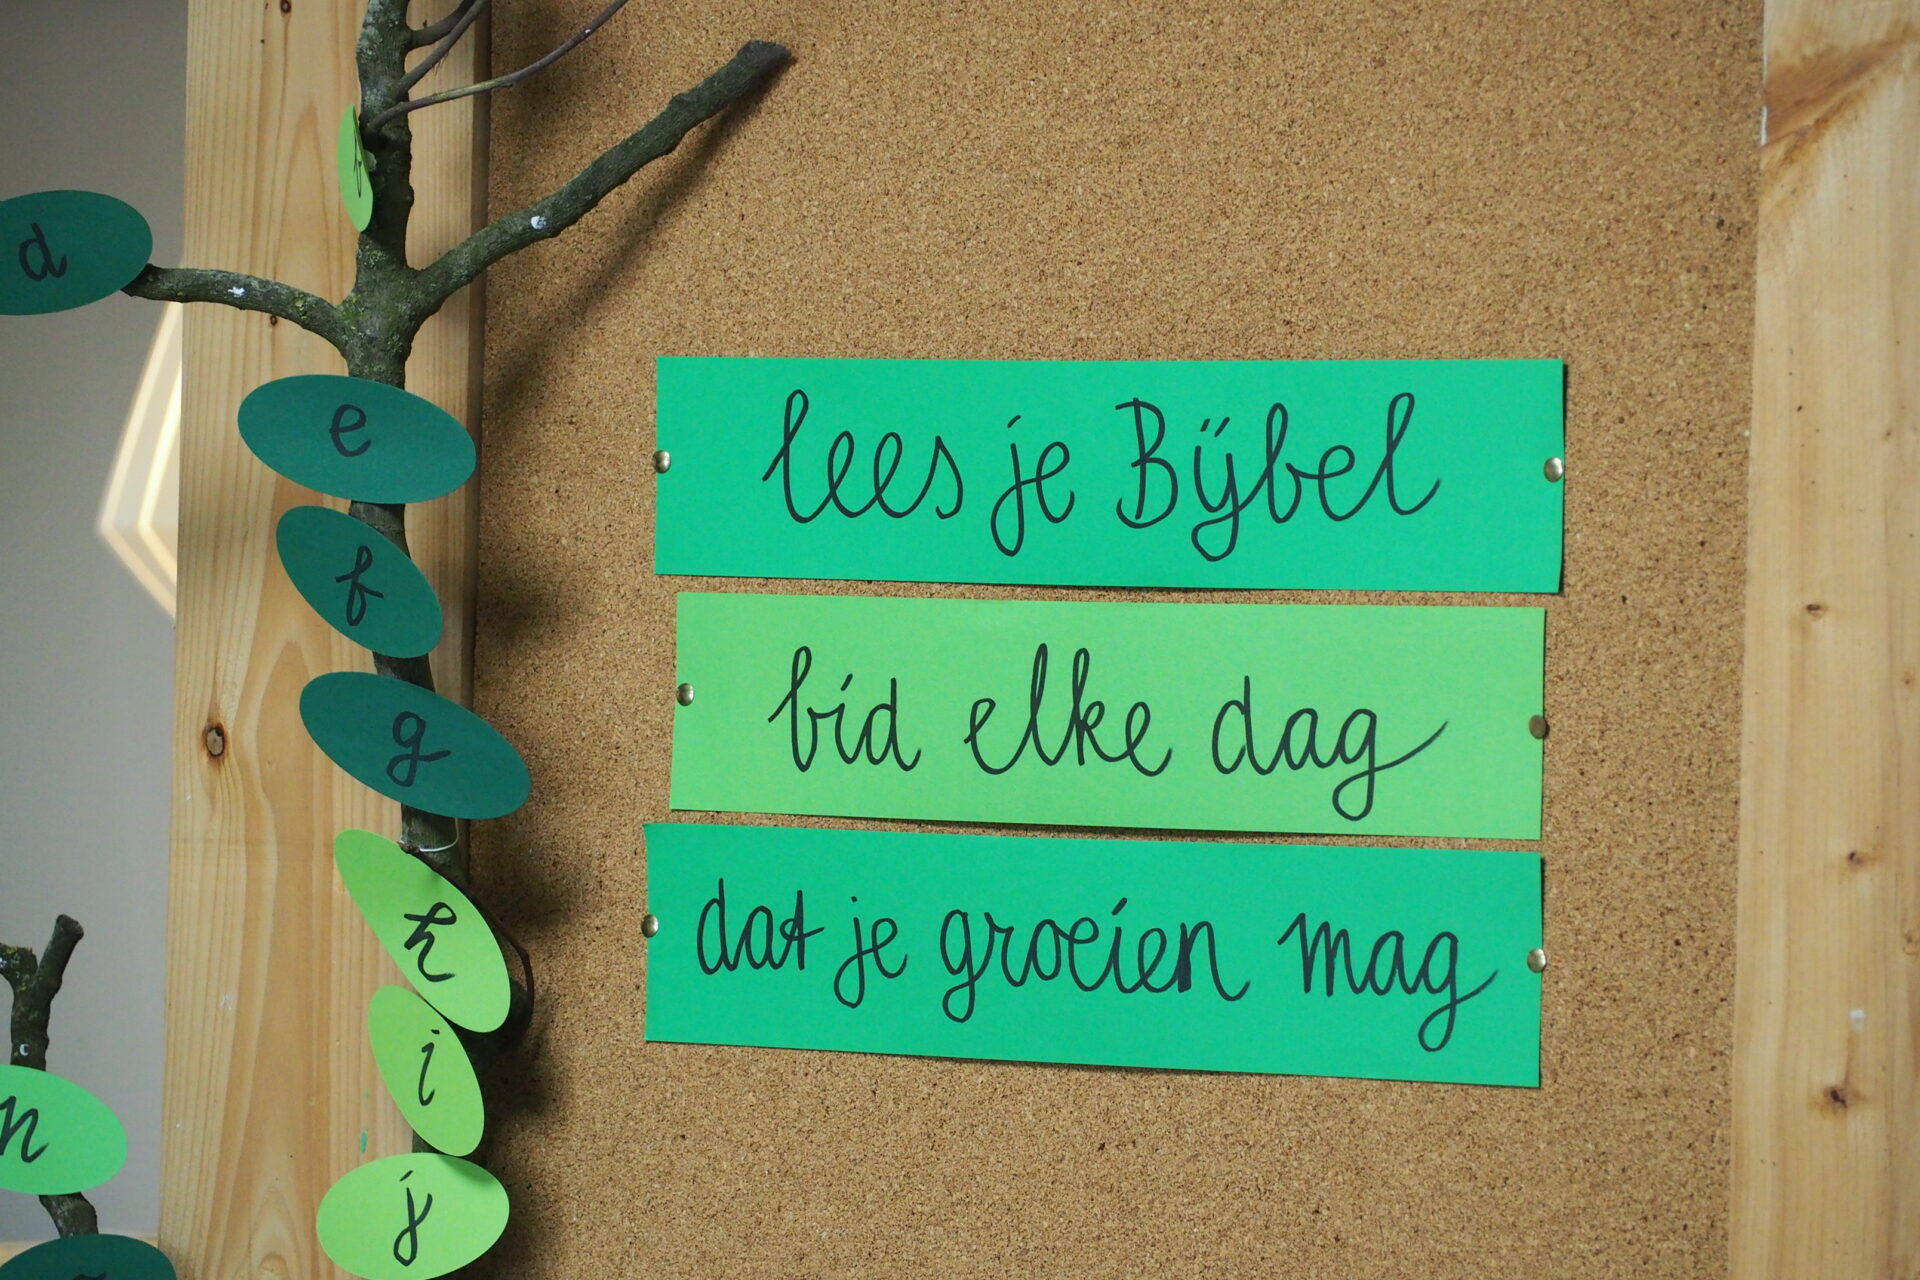 d
e
f
g
h
i
j
n
lees je Bijbel
bid elke dag
dat je groeien mag